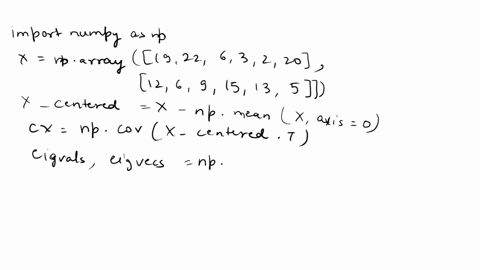 import numpy as np
X = np.array ([19, 22, 6, 3, 2, 20],
[12, 6, 9, 15, 13, 5]])
X_centered = X - np. mean (X, axis = 0)
CX = np. cov (X - centered . T)
eigvals, eigvecs = np.